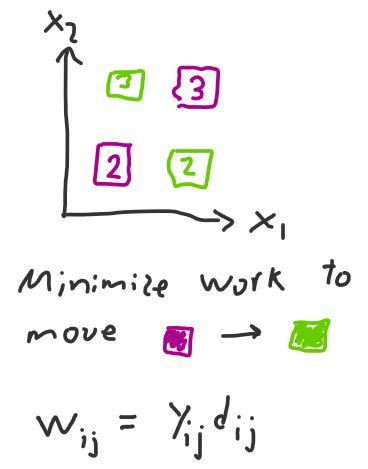 X₂
3 3
2 2
X₁
Minimize work to
move → 
w_ij = γ_ij d_ij